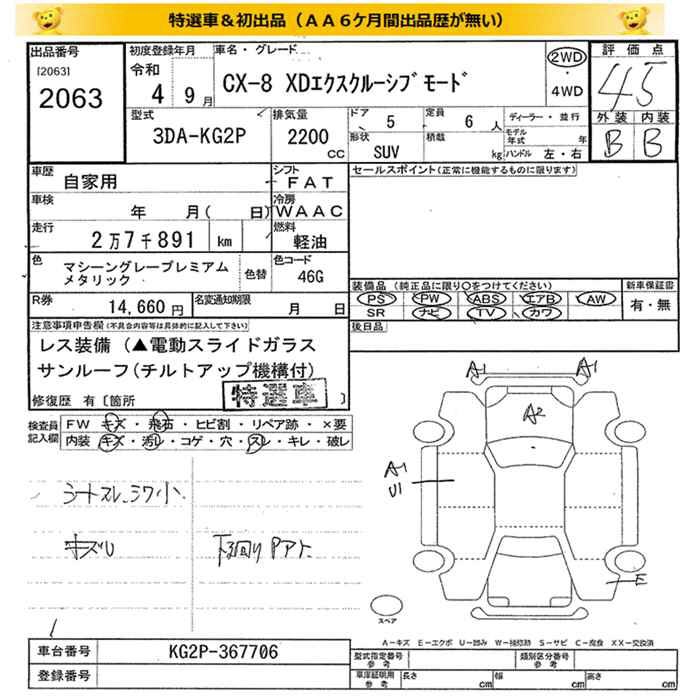 特選車&初出品(AA6ケ月間出品歴が無い)
出品番号 初度登録年月 車名・グレード 評価点
[2063] 令和 2WD
2063 4 9月 CX-8 XDエクスクルーシブモード ・ 4WD 4.5
型式 排気量 ドア 5 定員 6人 ディーラー・並行 外装 内装
3DA-KG2P 2200 CC 形状 SUV 積載 kg モデル年式 年 B B
ハンドル 左・右
車歴 自家用 シフト FAT セールスポイント(正常に機能するものに限ります)
車検 年 月( 日) 冷房 WAAC
走行 2万7千891 km 燃料 軽油
色 マシーングレープレミアム 色替 色コード 46G
メタリック
装備品(純正品に限り○をつけてください) 新車保証書
R券 14,660円 名変通知期限 月 日 PS PW ABS エアB AW 有・無
SR ナビ TV カワ
注意事項申告欄(不具合内容等は具体的に記入して下さい) 後日品
レス装備(▲電動スライドガラス
サンルーフ(チルトアップ機構付)
修復歴 有〔箇所 特選車 〕
検査員記入欄 FW キズ・飛石・ヒビ割・リペア跡・×要
内装 キズ・汚レ・コゲ・穴・スレ・キレ・破レ
A1 A1
A2
A1
U1
シートスレ、シワ小
キズU 下回りPアト
E
スペア
A-キズ E-エクボ U-凹み W-補修跡 S-サビ C-腐食 XX-交換済
車台番号 KG2P-367706 型式指定番号 参考 類別区分番号 参考
登録番号 車庫証明用 参考 長さ cm 幅 cm 高さ cm